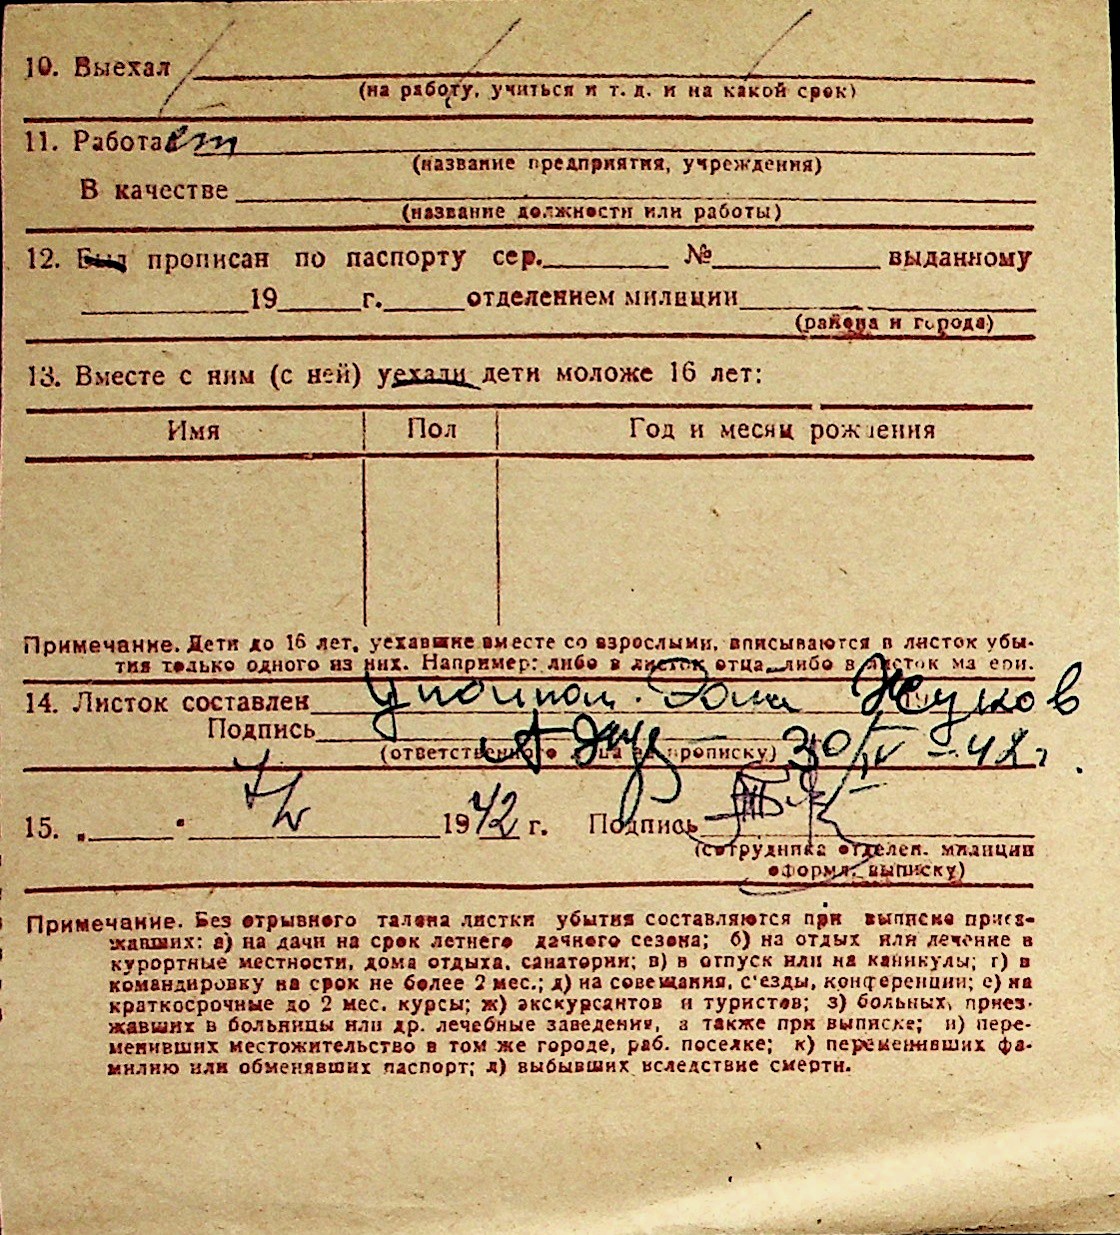 10. Выехал
(на работу, учиться и т. д. и на какой срок)
11. Работает
(название предприятия, учреждения)
В качестве
(название должности или работы)
12. Был прописан по паспорту сер. № выданному
19 г. отделением милиции
(района и города)
13. Вместе с ним (с ней) уехали дети моложе 16 лет:
Имя Пол Год и месяц рождения
Примечание. Дети до 16 лет, уехавшие вместе со взрослыми, вписываются в листок убы-
тия только одного из них. Например: либо в листок отца либо в листок матери.
14. Листок составлен Жуков
Подпись 30/IV – 42 г.
(ответственного лица за прописку)
15. „ “ 1942 г. Подпись
(сотрудника отделен. милиции
оформл. выписку)
Примечание. Без отрывного талона листки убытия составляются при выписке приез-
жавших: а) на дачи на срок летнего дачного сезона; б) на отдых или лечение в
курортные местности, дома отдыха, санатории; в) в отпуск или на каникулы; г) в
командировку на срок не более 2 мес.; д) на совещания, с'езды, конференции; е) на
краткосрочные до 2 мес. курсы; ж) экскурсантов и туристов; з) больных, приез-
жавших в больницы или др. лечебные заведения, а также при выписке; и) пере-
менивших местожительство в том же городе, раб. поселке; к) переменивших фа-
милию или обменявших паспорт; л) выбывших вследствие смерти.